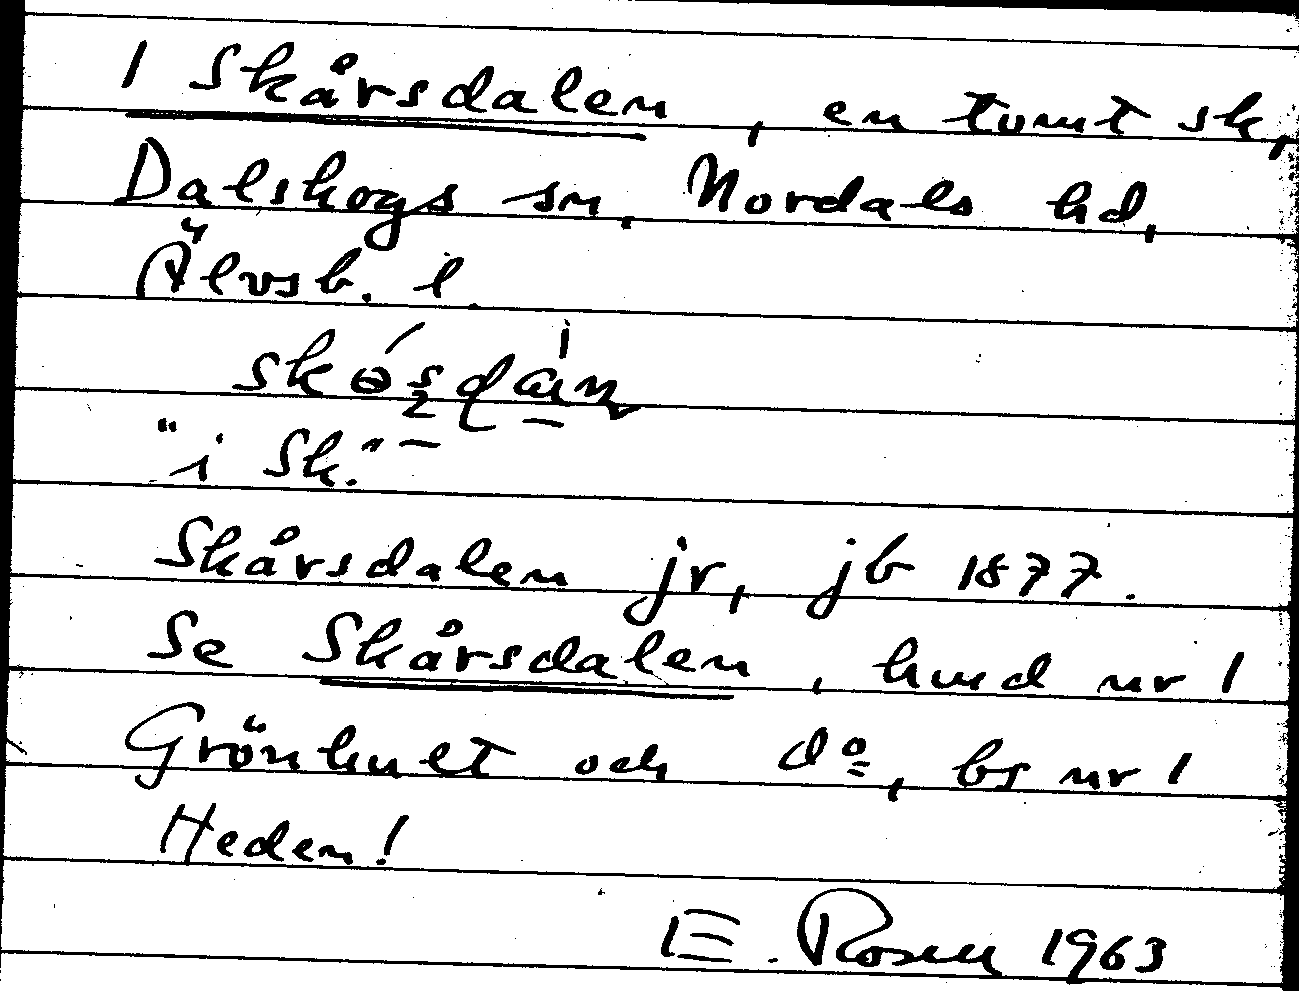 1 Skårsdalen, en tomt sk,
Dalskogs sn, Nordals hd,
Älvsb. l.
"i Sk."
Skårsdalen jr, jb 1877.
Se Skårsdalen, hmd nr 1
Grönhult och do, bs nr 1
Heden!
E. Rosell 1963